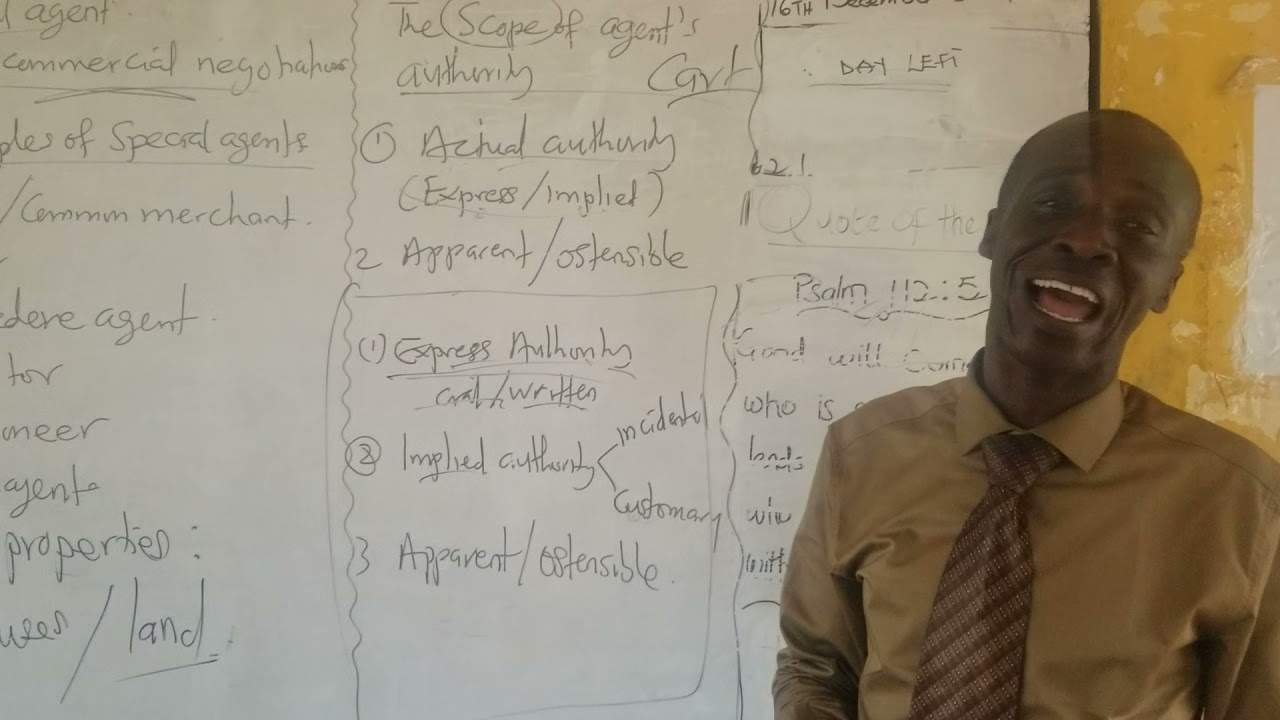 agent.
commercial negotiations
ples of Special agents
/Commun merchant.
edere agent.
tor
neer
agent
properties:
uses / land
The Scope of agent's
authority
Cart
① Actual authority
(Express/implied)
2 Apparent/ostensible
(1) Express Authority
oral/written
② Implied authority
incidental
Customary
3 Apparent/ostensible.
16TH December
DAY LEFT
62.1.
Quote of the
Psalm 112:5
Good will come
who is
lends
with